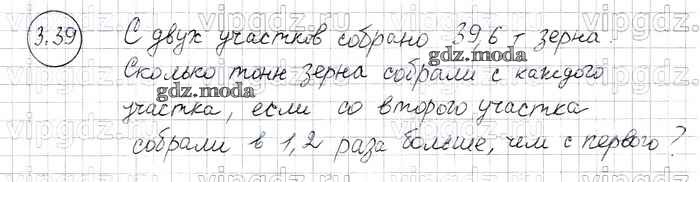 3.39 С двух участков собрано 39,6 т зерна.
Сколько тонн зерна собрали с каждого
участка, если со второго участка
собрали в 1,2 раза больше, чем с первого?
gdz.moda
gdz.moda
gdz.moda
vipgdz.ru
vipgdz.ru
vipgdz.ru